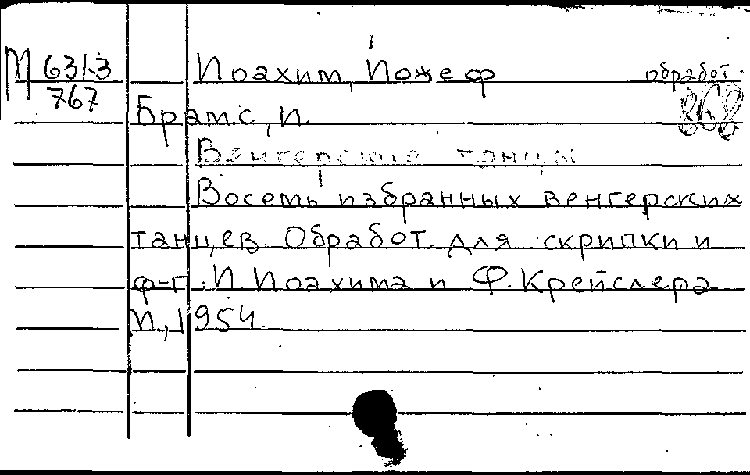 М 631-3
767
Иоахим, Йожеф обработ.
Брамс, И.
Венгерские танцы
Восемь избранных венгерских
танцев. Обработ. для скрипки и
ф-п. И. Иоахима и Ф. Крейслера
М., 1954